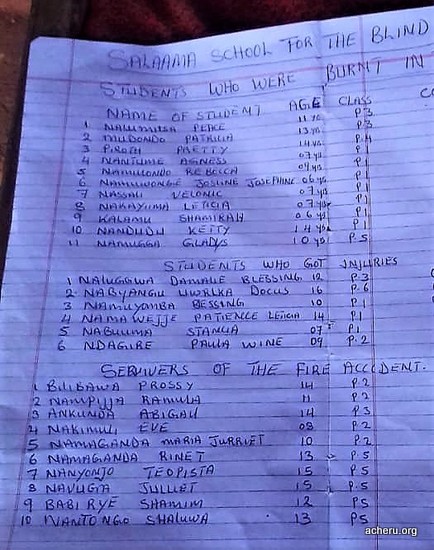 SALAAMA SCHOOL FOR THE BLIND
STUDENTS WHO WERE BURNT IN
NAME OF STUDENT AGE CLASS
1 NALUMITSA PERE 11 yrs P3
2 MUDONDO PATRICIA 13 yrs P3
3 PIROTH PRETTY 14 yrs P.4
4 NANTUME AGNESS 07 yrs P.1
5 NAMULONDO REBECCA 04 yrs P.1
6 NAMUWONGE JOSLINE JOSEPHINE 06 yrs P.1
7 NASSALI VELONIC 07 yrs P.1
8 NAKAYIIMA LETICIA 07 yrs P.1
9 KALAMU SHAMIRAH 06 yrs P.1
10 NANDUDU KETTY 14 yrs P.1
11 NAMUGGA GLADYS 10 yrs P.5
STUDENTS WHO GOT INJURIES
1 NALUGGWA DAMALIE BLESSING 12 P.3
2 NABYANGU DOCUS 16 P.6
3 NAMUYOMBA BESSING 10 P.1
4 NAMAWEJJE PATIENCE LETICIA 14 P.1
5 NABUUMA STANCIA 07 P.1
6 NDAGIRE PAULA WINE 09 P.2
SERVIVERS OF THE FIRE ACCIDENT.
1 BILIBAWA PROSSY 14 P.2
2 NAMPIJJA RAMULA 11 P.2
3 ANKUNDA ABIGAIL 14 P.3
4 NAKIMULI EVE 08 P.2
5 NAMAGANDA MARIA JURRIET 10 P.2
6 NAMAGANDA RINET 13 P.5
7 NANYONJO TEOPISTA 15 P.5
8 NAVUGA JULLIET 15 P.5
9 BABIRYE SHAMIM 12 P5
10 NANTONGO SHALUWA 13 P5
acheru.org